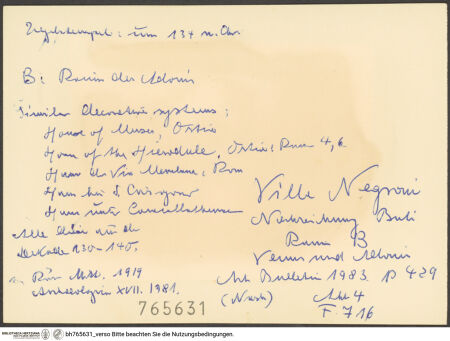 Ziegelstempel: um 134 n. Chr.
B: Raum des Adonis
Similar decorative systems:
House of Muses, Ostia
Haus of the Hierodule, Ostia: Raum 4, 6
Haus der Via Merulana: Rom
Haus bei S. Crisogono
Haus unter Caracallathermen
Alle Häuser aus der
Dekade 130-140.
Röm. Mitt. 1919
Archeologia XVII. 1981.
Villa Negroni
Nachzeichnung Buti
Raum B
Venus und Adonis
Art Bulletin 1983. p 429
(Nash)
Abb 4
F. 716
765631
BIBLIOTHECA HERTZIANA bh765631_verso Bitte beachten Sie die Nutzungsbedingungen.